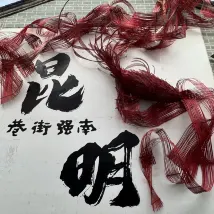 昆
南强街巷
明